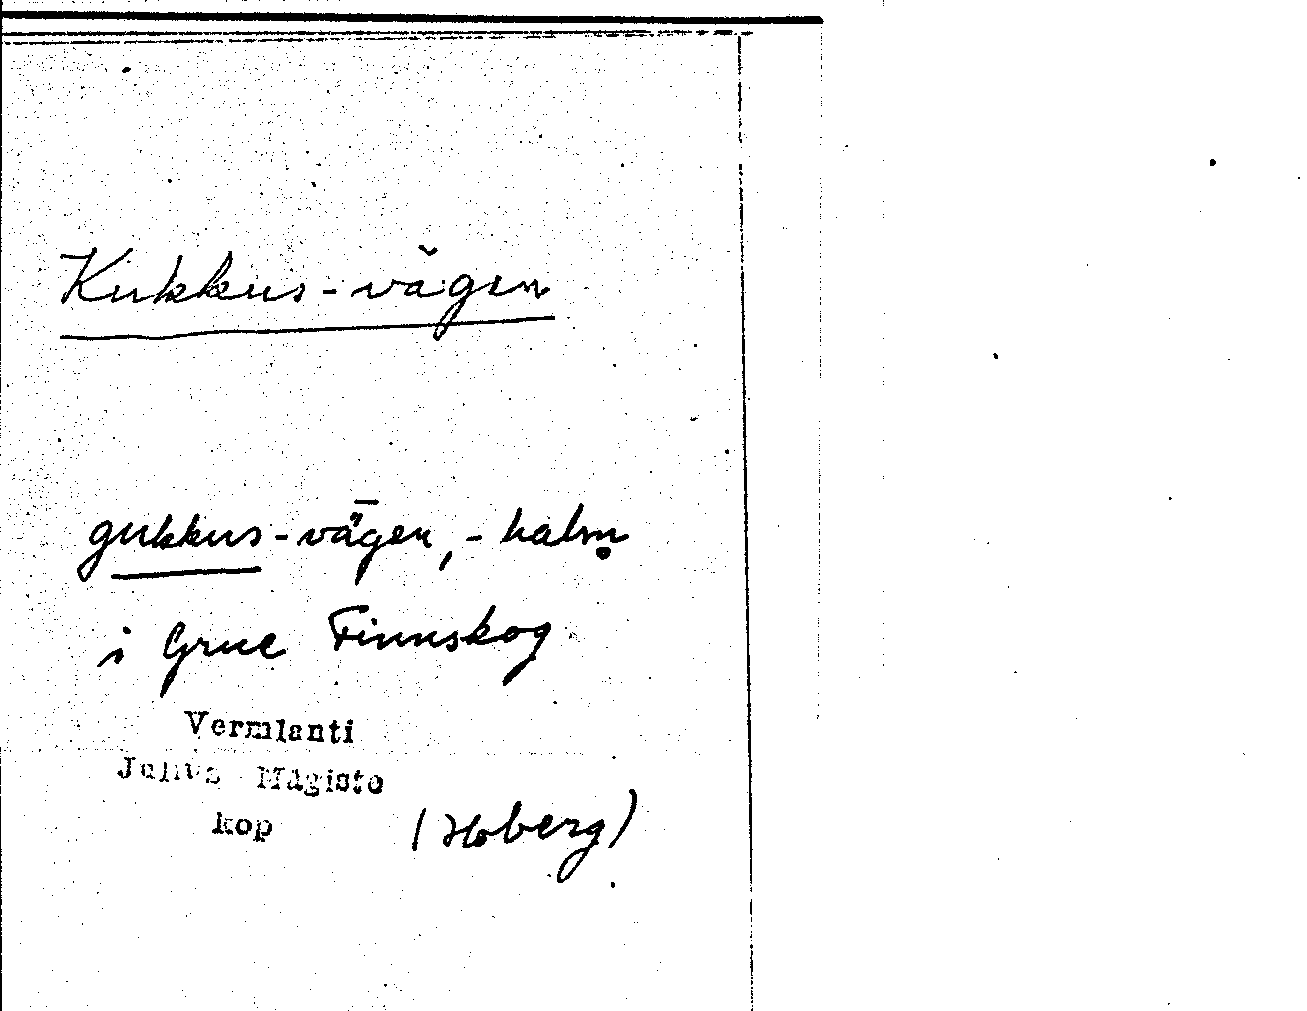 Kukkus-vägen
gukkus-vǟgen, -halm̥
i Grue Finnskog
Vermlanti
Julius Mägiste
kop
(Hoberg)